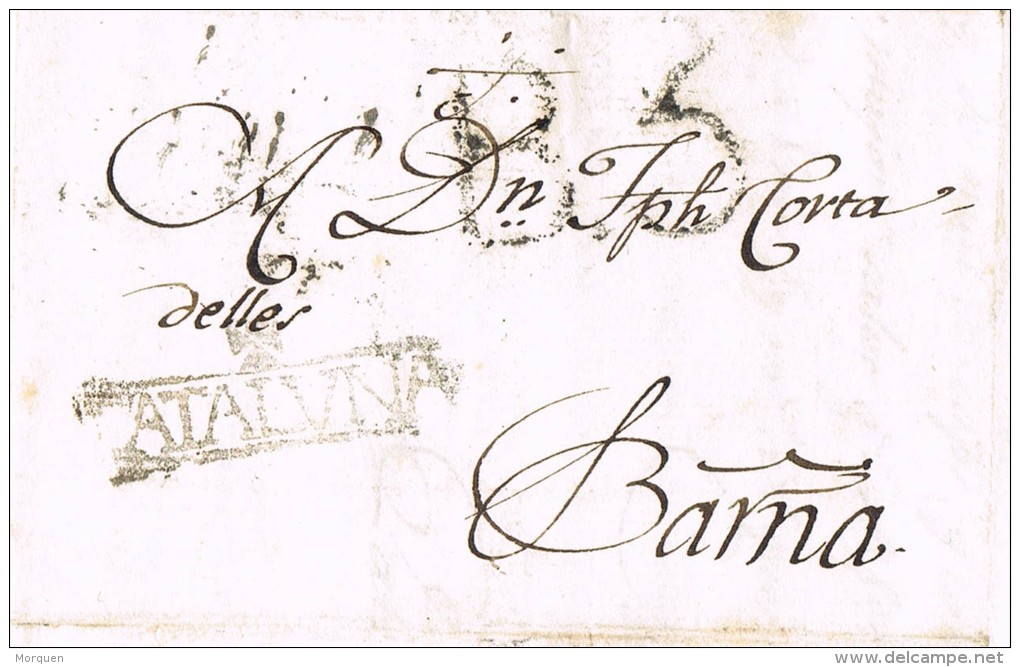 A Dn. Jph Corta-
delles
CATALUÑA
Barna.
Morquen
delcampe.net